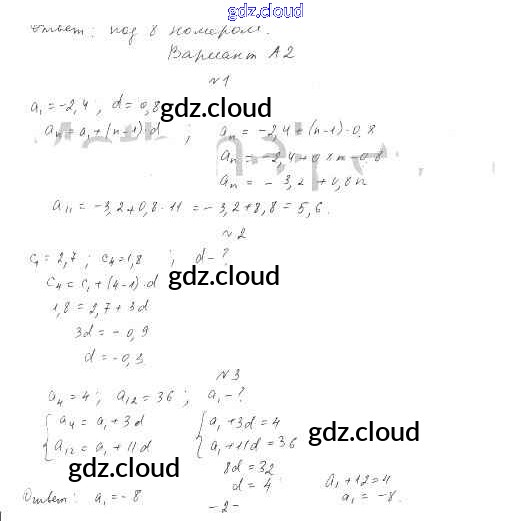 gdz.cloud
Ответ: под 8 номером.
Вариант А2
№1
a₁ = -2,4, d = 0,8 gdz.cloud
aₙ = a₁ + (n-1)·d ; aₙ = -2,4 + (n-1)·0,8
aₙ = -2,4 + 0,8n - 0,8
aₙ = -3,2 + 0,8n
a₁₁ = -3,2 + 0,8·11 = -3,2 + 8,8 = 5,6.
№2
c₁ = 2,7; c₄ = 1,8 ; d - ?
c₄ = c₁ + (4-1)·d gdz.cloud
1,8 = 2,7 + 3d
3d = -0,9
d = -0,3 gdz.cloud
№3
a₄ = 4; a₁₂ = 36 ; a₁ - ?
{ a₄ = a₁ + 3d { a₁ + 3d = 4
a₁₂ = a₁ + 11d a₁ + 11d = 36 gdz.cloud
gdz.cloud 8d = 32
d = 4 a₁ + 12 = 4
Ответ: a₁ = -8 a₁ = -8.
-2-